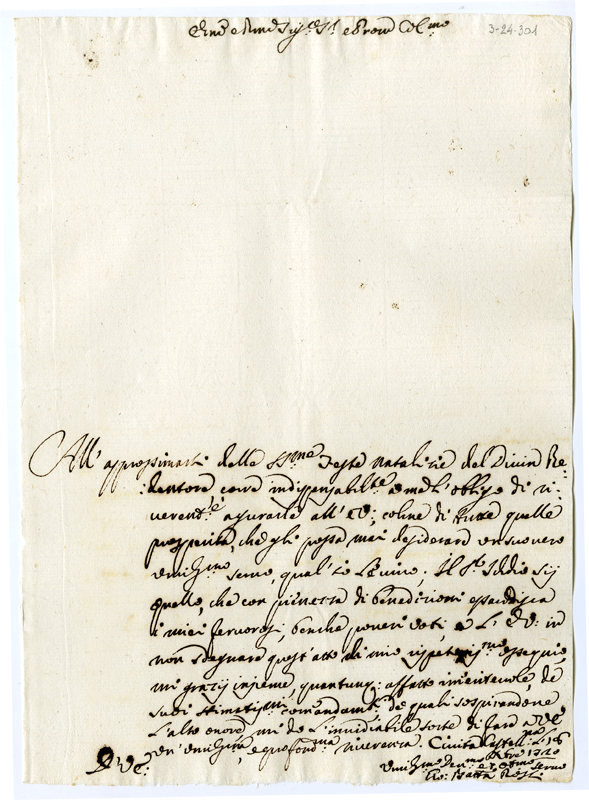 Em̃o e Rmo Sig.re Sr. e Pron Col.mo
3-24.301
All' approssimarsi delle SS.me Feste Natalizie del Divin Re-
dentore, corre indispensabil.te à me l'obligo di ri-
verent.e augurarle all' EV: colme di tutte quelle
prosperità, che gli possa mai desiderare un suo vero
umiliss.mo servo, qual' io vivo; Il Sr. Iddio sij
quello, che con pienezza di benedizioni esaudisca
i miei fervorosi, benche poveri voti, e L' EV: in
non sdegnare quest' atto di mio rispettosis.mo ossequio,
mi grazij insieme, quantunq: affatto immeritevole, de
suoi stimatis.mi comandam.ti de quali sospirandone
L'alto onore, mi dò L'invidiabile sorte di fare a VE
un' umilis.ma, e profond.ma riverenza. Civita Castell.na Li 16
Xbre 1720
D. V. E.
Umiliss.mo Dev.mo et Obb.mo Servo
Gio: Batta